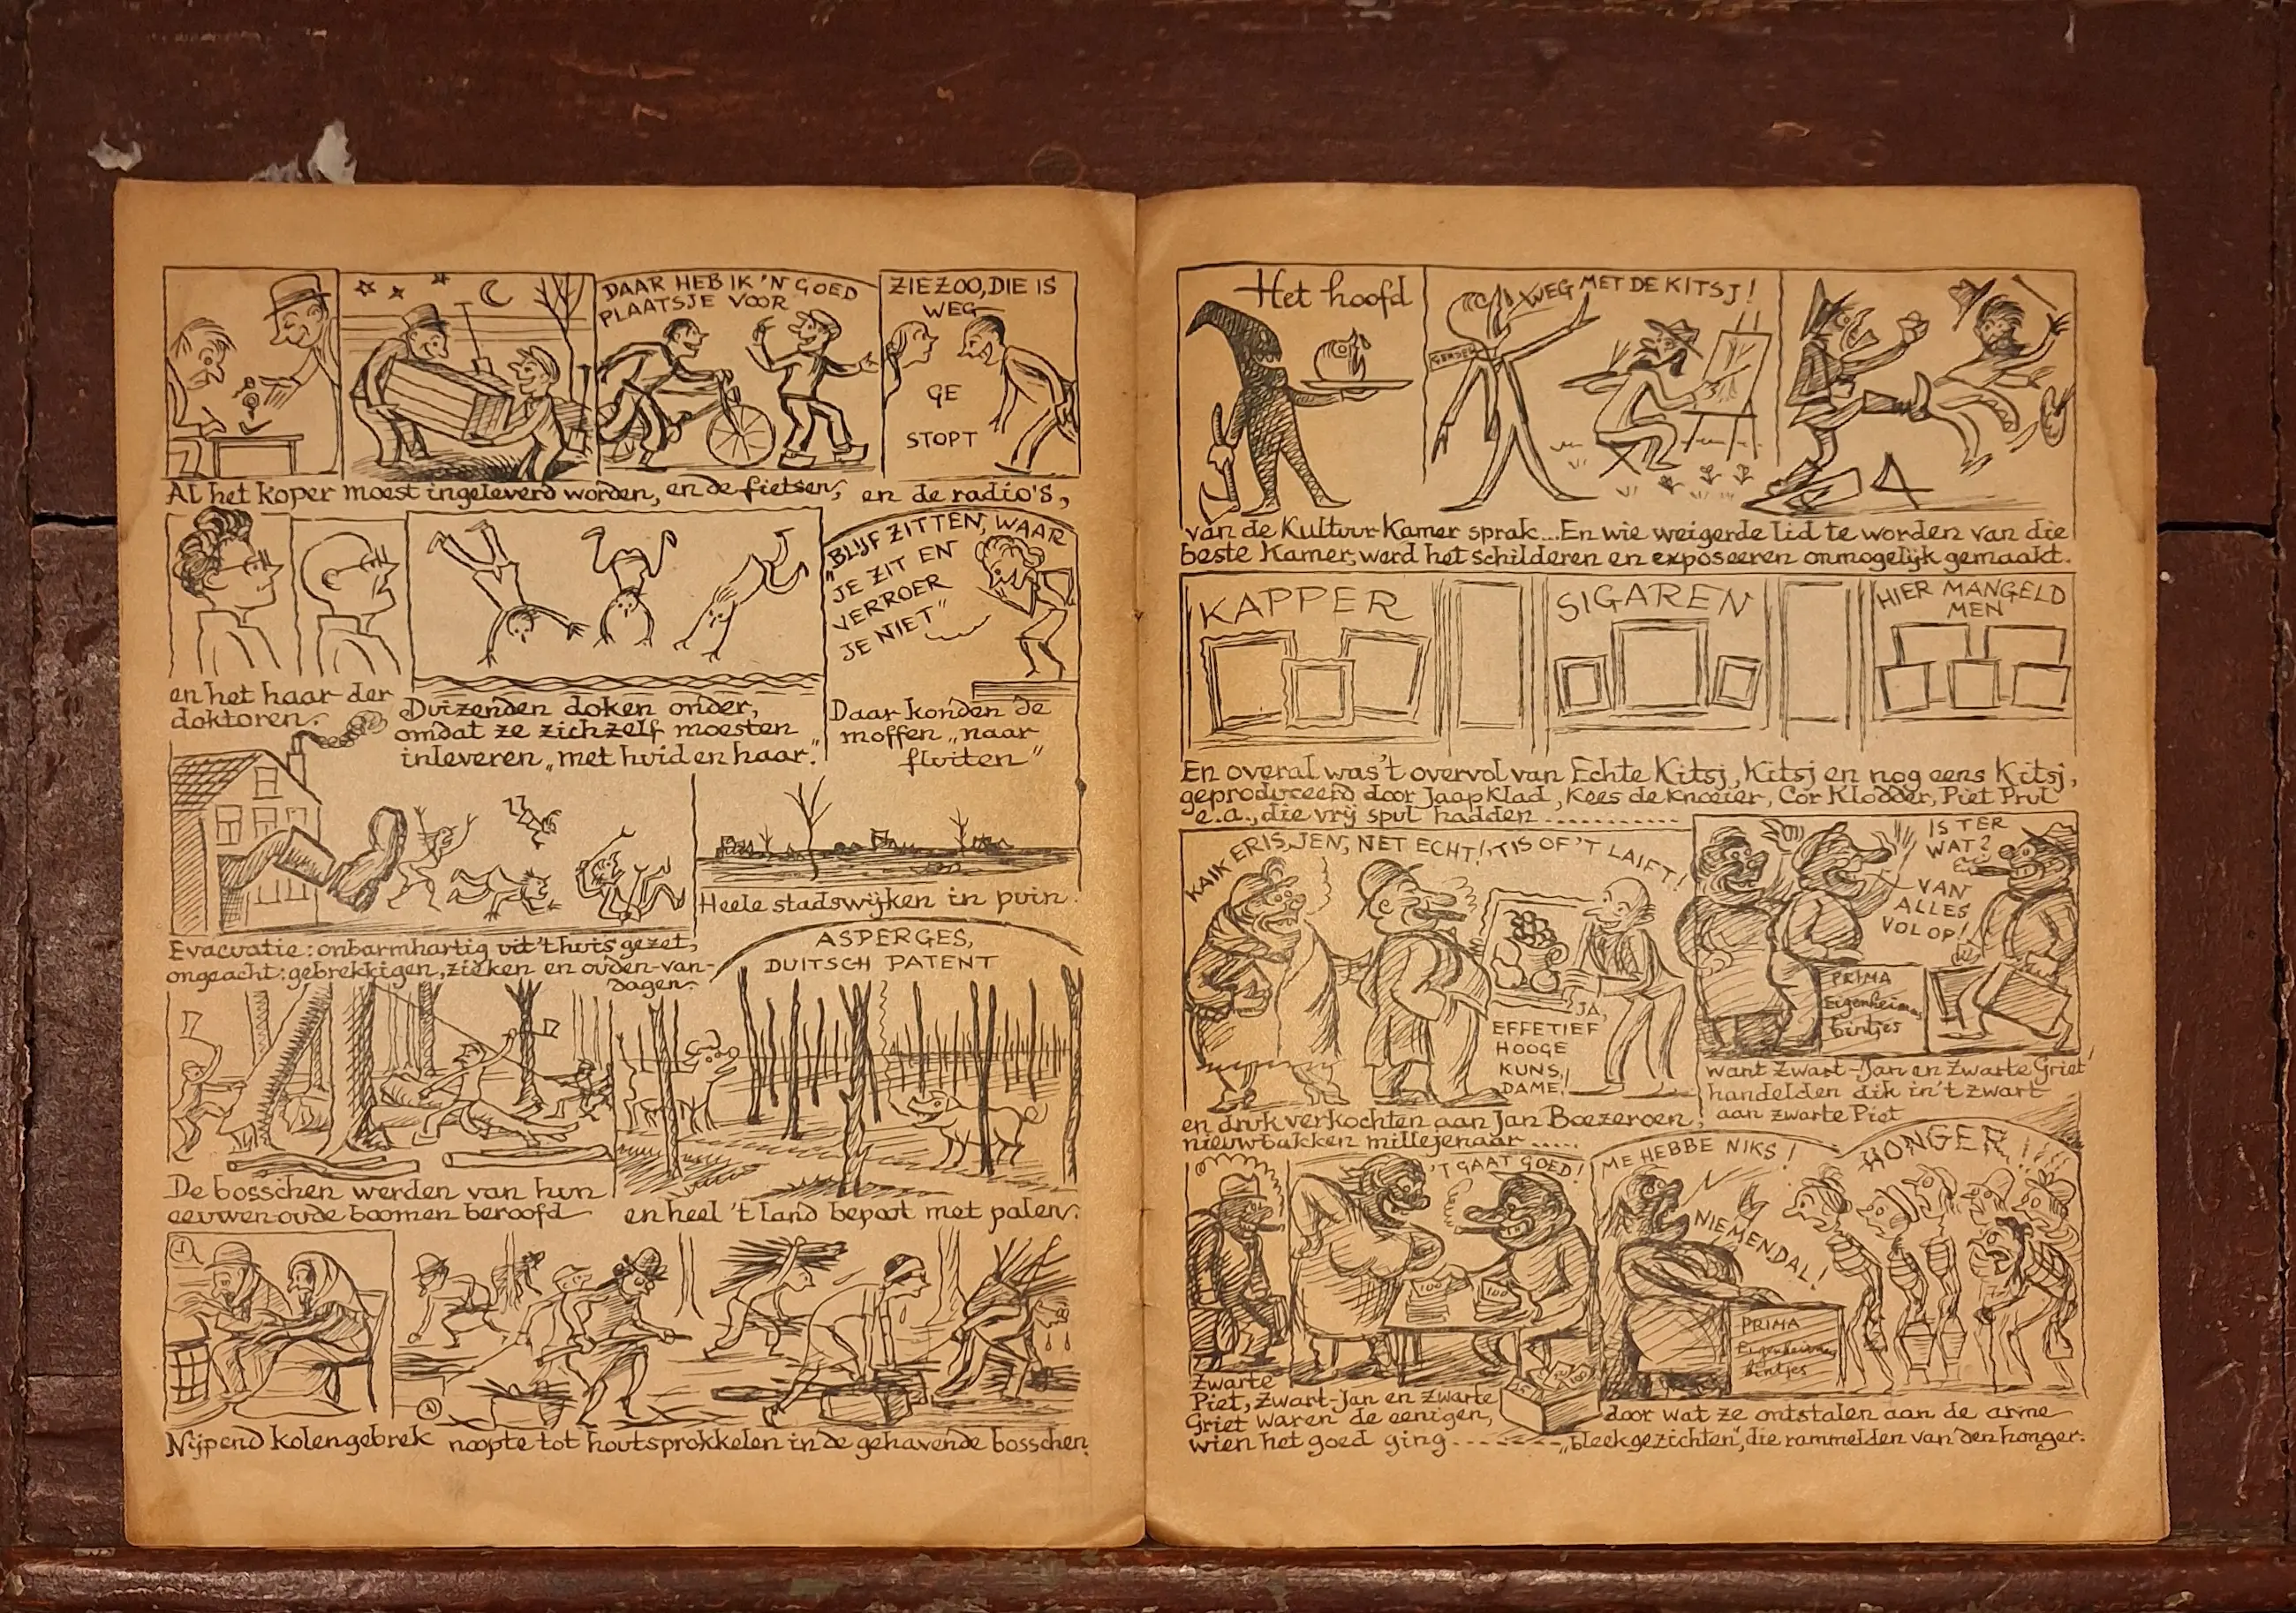 DAAR HEB IK 'N GOED
PLAATSJE VOOR
ZIEZOO, DIE IS
WEG
GE
STOPT
Al het koper moest ingeleverd worden, en de fietsen, en de radio's,
en het haar der
doktoren.
Duizenden doken onder,
omdat ze zichzelf moesten
inleveren „met huid en haar."
„BLIJF ZITTEN, WAAR
JE ZIT EN
VERROER
JE NIET"
Daar konden de
moffen „naar
fluiten"
Evacuatie: onbarmhartig uit 't huis gezet,
ongeacht: gebrekkigen, zieken en ouden-van-
dagen.
Heele stadswijken in puin.
ASPERGES,
DUITSCH PATENT
De bosschen werden van hun
eeuwen-oude boomen beroofd
en heel 't land bepoot met palen.
Nijpend kolengebrek noopte tot houtsprokkelen in de gehavende bosschen.
Het hoofd
WEG MET DE KITSJ!
van de Kultuur-Kamer sprak...En wie weigerde lid te worden van die
beste Kamer, werd het schilderen en exposeeren onmogelijk gemaakt.
KAPPER
SIGAREN
HIER MANGELD
MEN
En overal was 't overvol van Echte Kitsj, Kitsj en nog eens Kitsj,
geproduceerd door Jaap Klad, Kees de Knoeier, Cor Klodder, Piet Prul
e.a., die vrij spul hadden ...........
KAIK ERIS, JEN, NET ECHT! 'TIS OF 'T LAIFT!
JA,
EFFETIEF
HOOGE
KUNS,
DAME!
en druk verkochten aan Jan Boezeroen,
nieuwbakken millejenaar .....
IS TER
WAT?
VAN
ALLES
VOLOP!
PRIMA
Eigenheimers
bintjes
want Zwart-Jan en Zwarte Griet
handelden dik in 't zwart
aan zwarte Piet
'T GAAT GOED!
100
100
Zwarte
Piet, Zwart-Jan en Zwarte
Griet waren de eenigen,
wien het goed ging .......
ME HEBBE NIKS!
NIEMENDAL!
HONGER!!
PRIMA
Eigenheimers
bintjes
door wat ze ontstalen aan de arme
„bleekgezichten", die rammelden van den honger.